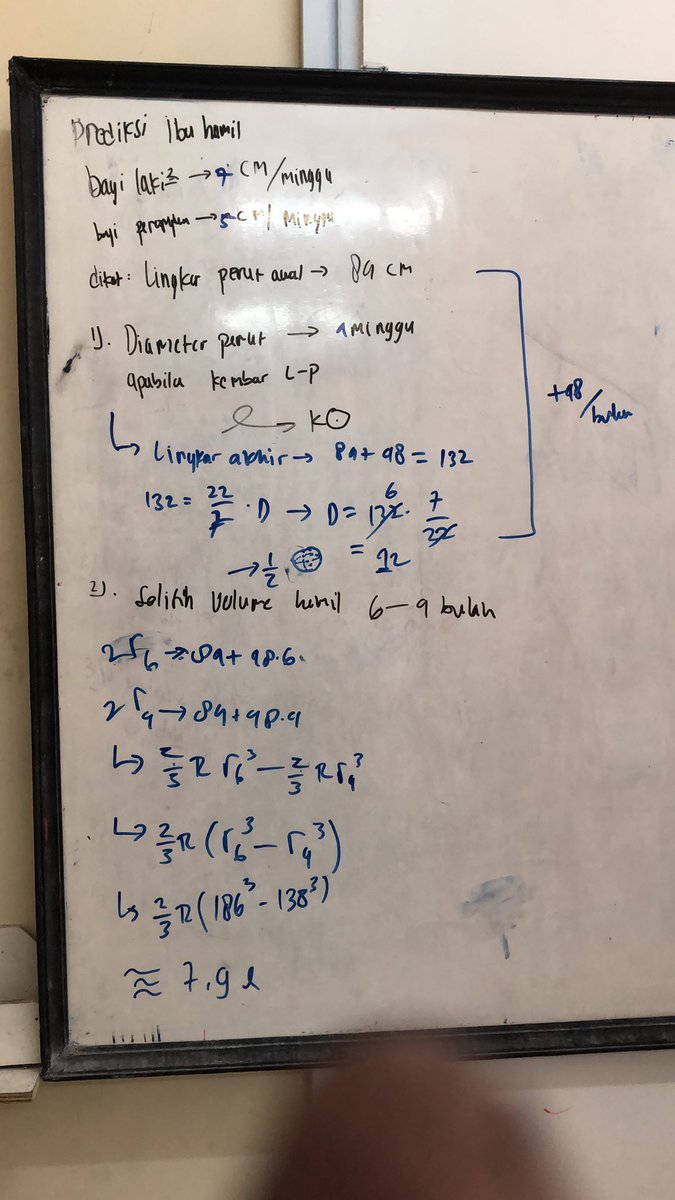 Prediksi Ibu hamil
bayi laki² → 7 CM/minggu
bayi perempuan → 5 CM/ Minggu
diket: Lingkar perut awal → 84 CM
1). Diameter perut → 4 minggu
apabila kembar L-P
→ KO
↳ Lingkar akhir → 84 + 48 = 132
+48/bulan
132 = 22/7 · D → D = 132 · 7/22 6
→ 1/2 · = 42
2). Selisih Volume hamil 6 – 4 bulan
2r₆ → 84 + 48.6.
2r₄ → 84 + 48.4
↳ 2/3 π r₆³ – 2/3 π r₄³
↳ 2/3 π (r₆³ – r₄³)
↳ 2/3 π (186³ - 138³)
≈ 7.9 l